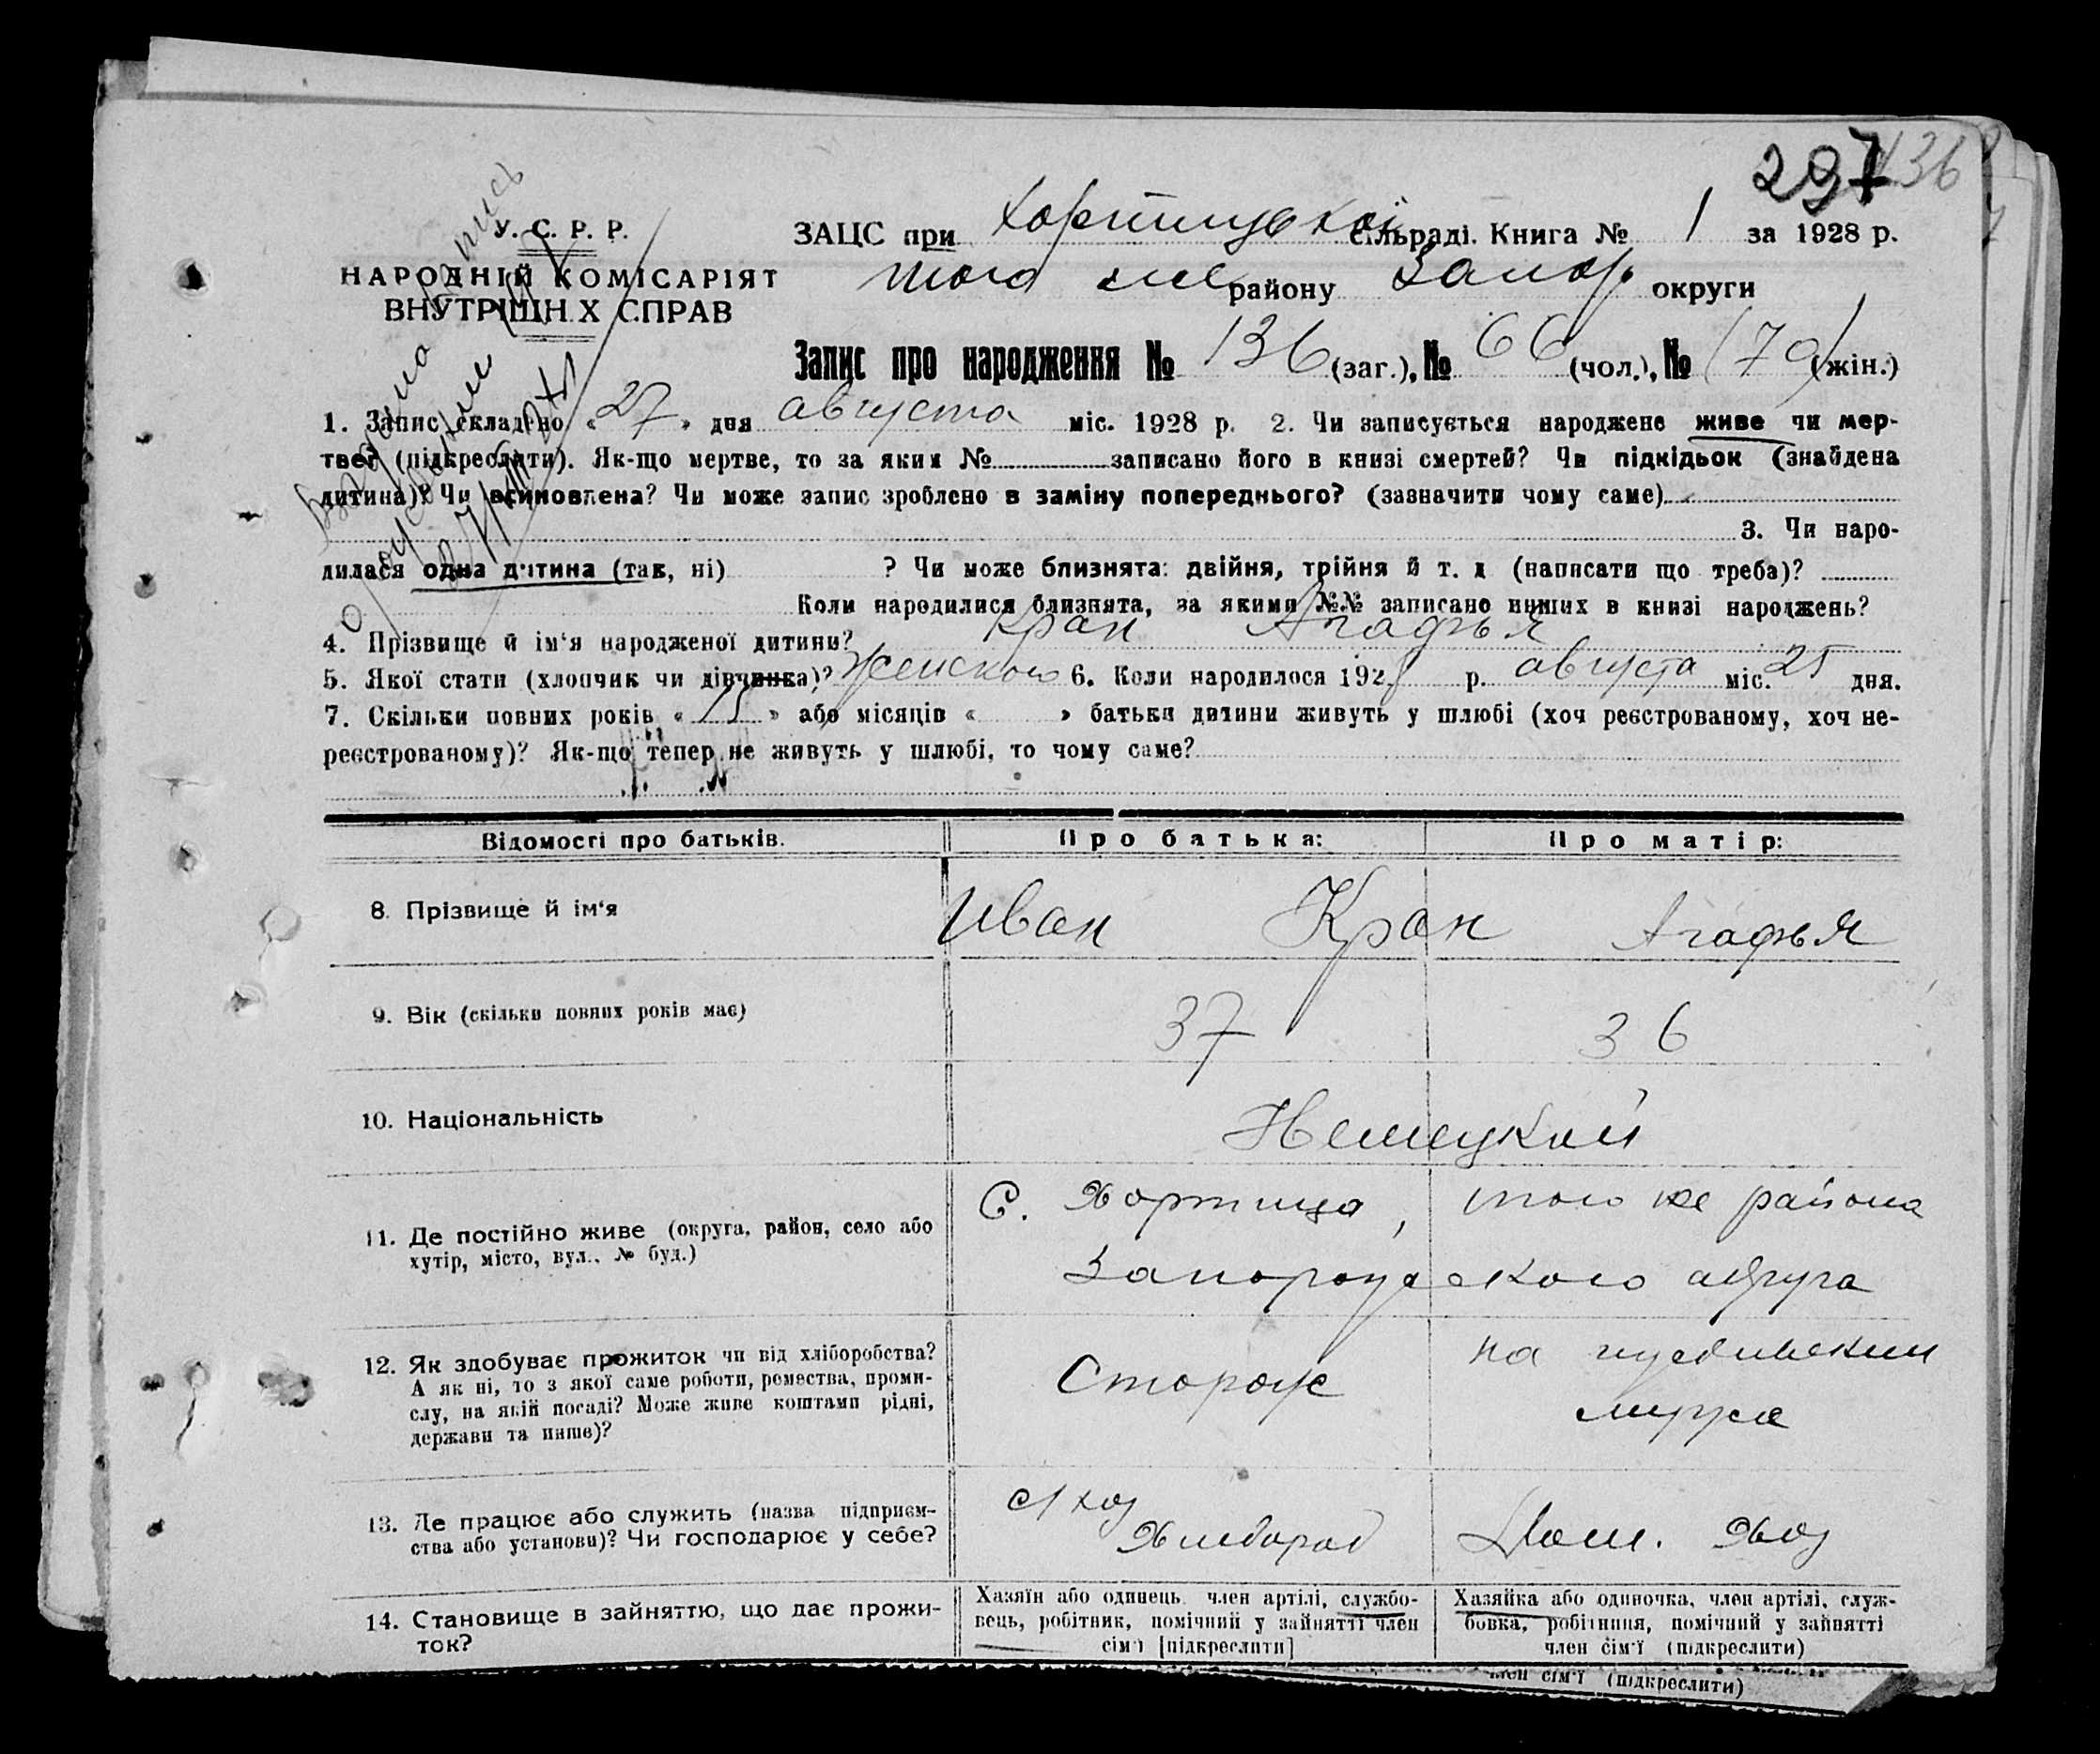 297 136
У. С. Р. Р.
НАРОДНІЙ КОМІСАРІЯТ
ВНУТРІШН Х СПРАВ
ЗАЦС при Хортицькой сільраді. Книга № 1 за 1928 р.
того же району Запор. округи
Запис про народження № 136 (заг.), № 66 (чол.), № (70) (жін.)
1. Запис складено „27" дня августа міс. 1928 р. 2. Чи записується народжене живе чи мер-
тве? (підкреслити). Як-що мертве, то за яким № записано його в книзі смертей? Чи підкідьок (знайдена
дитина)? Чи всиновлена? Чи може запис зроблено в заміну попереднього? (зазначити чому саме)
3. Чи наро-
дилася одна дитина (так, ні) ? Чи може близнята: двійня, трійня й т. д (написати що треба)?
Коли народилися близнята, за якими №№ записано инших в книзі народжень?
4. Прізвище й ім'я народженої дитини? Кран Агафья
5. Якої стати (хлопчик чи дівчинка)? Женского 6. Коли народилося 1928 р. августа міс. 25 дня.
7. Скільки повних років « 15 » або місяців « » батьки дитини живуть у шлюбі (хоч реєстрованому, хоч не-
реєстрованому)? Як-що тепер не живуть у шлюбі, то чому саме?
Відомості про батьків. Про батька: Про матір:
8. Прізвище й ім'я Иван Кран Агафья
9. Вік (скільки повних років має) 37 36
10. Національність Немецкий
11. Де постійно живе (округа, район, село або
хутір, місто, вул., № буд.)
С. Хортица, того же района
Запорожского округа
12. Як здобуває прожиток чи від хліборобства?
А як ні, то з якої саме роботи, ремества, проми-
слу, на якій посаді? Може живе коштами рідні,
держави та инше)?
Сторож
на иждивении
мужа
13. Де працює або служить (назва підприєм-
ства або установи)? Чи господарює у себе?
с/хоз
Хлебороб
Дом. Хоз
14. Становище в зайняттю, що дає прожи-
ток?
Хазяїн або одинець, член артілі, службо-
вець, робітник, помічний у зайнятті член
сім'ї [підкреслити]
Хазяйка або одиночка, член артілі, служ-
бовка, робітниця, помічний у зайнятті
член сім'ї (підкреслити)
член сім'ї (підкреслити)